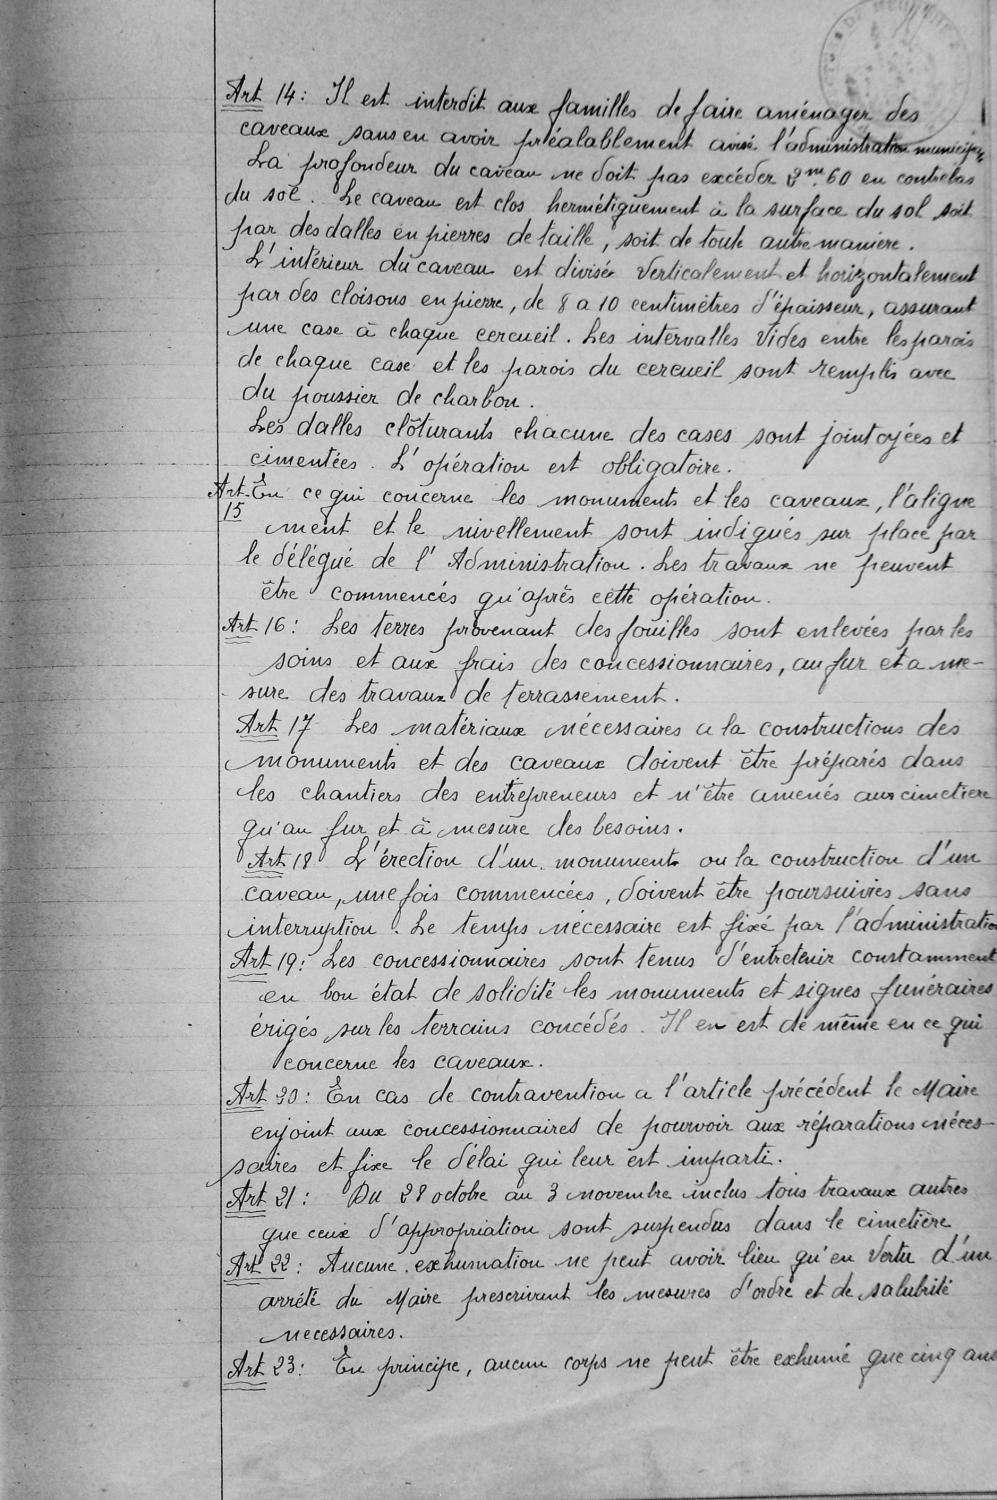 Art 14: Il est interdit aux familles de faire aménager des
caveaux sans en avoir préalablement avisé l'administration municipale
La profondeur du caveau ne doit pas excéder 2m.60 en contrebas
du sol. Le caveau est clos hermétiquement à la surface du sol soit
par des dalles en pierres de taille, soit de toute autre manière.
L'intérieur du caveau est divisée verticalement et horizontalement
par des cloisons en pierre, de 8 a 10 centimètres d'épaisseur, assurant
une case à chaque cercueil. Les intervalles vides entre les parois
de chaque case et les parois du cercueil sont remplis avec
du poussier de charbon.
Les dalles clôturants chacune des cases sont jointoyées et
cimentées. L'opération est obligatoire.
Art. 15 En ce qui concerne les monuments et les caveaux, l'aligne
ment et le nivellement sont indiqués sur place par
le délégué de l'Administration. Les travaux ne peuvent
être commencés qu'après cette opération.
Art 16: Les terres provenant des fouilles sont enlevées par les
soins et aux frais des concessionnaires, au fur et a me-
sure des travaux de terrassement.
Art 17 Les matériaux nécessaires a la constructions des
monuments et des caveaux doivent être préparés dans
les chantiers des entrepreneurs et n'être amenés aux cimetière
qu'au fur et à mesure des besoins.
Art 18 L'érection d'un monument ou la construction d'un
caveau, une fois commencées, doivent être poursuivies sans
interruption. Le temps nécessaire est fixé par l'administration
Art 19: Les concessionnaires sont tenus d'entretenir constamment
en bon état de solidité les monuments et signes funéraires
érigés sur les terrains concédés. Il en est de même en ce qui
concerne les caveaux.
Art 20: En cas de contravention a l'article précédent le Maire
enjoint aux concessionnaires de pourvoir aux réparations néces-
saires et fixe le délai qui leur est imparti.
Art 21: Du 28 octobre au 3 novembre inclus tous travaux autres
que ceux d'appropriation sont suspendus dans le cimetière
Art 22: Aucune exhumation ne peut avoir lieu qu'en vertu d'un
arrété du Maire prescrivent les mesures d'ordre et de salubrité
necessaires.
Art 23: En principe, aucun corps ne peut être exhumé que cinq ans